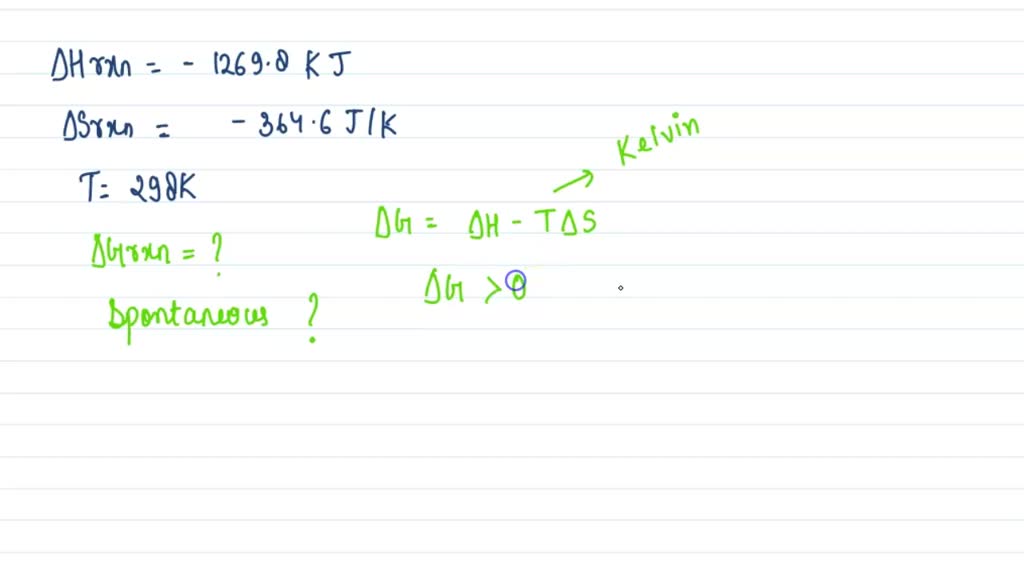 ΔHrxn = - 1269.8 KJ
ΔSrxn = - 364.6 J/K
T= 298K
ΔGrxn = ?
Spontaneous ?
Kelvin
ΔG = ΔH - TΔS
ΔG > 0